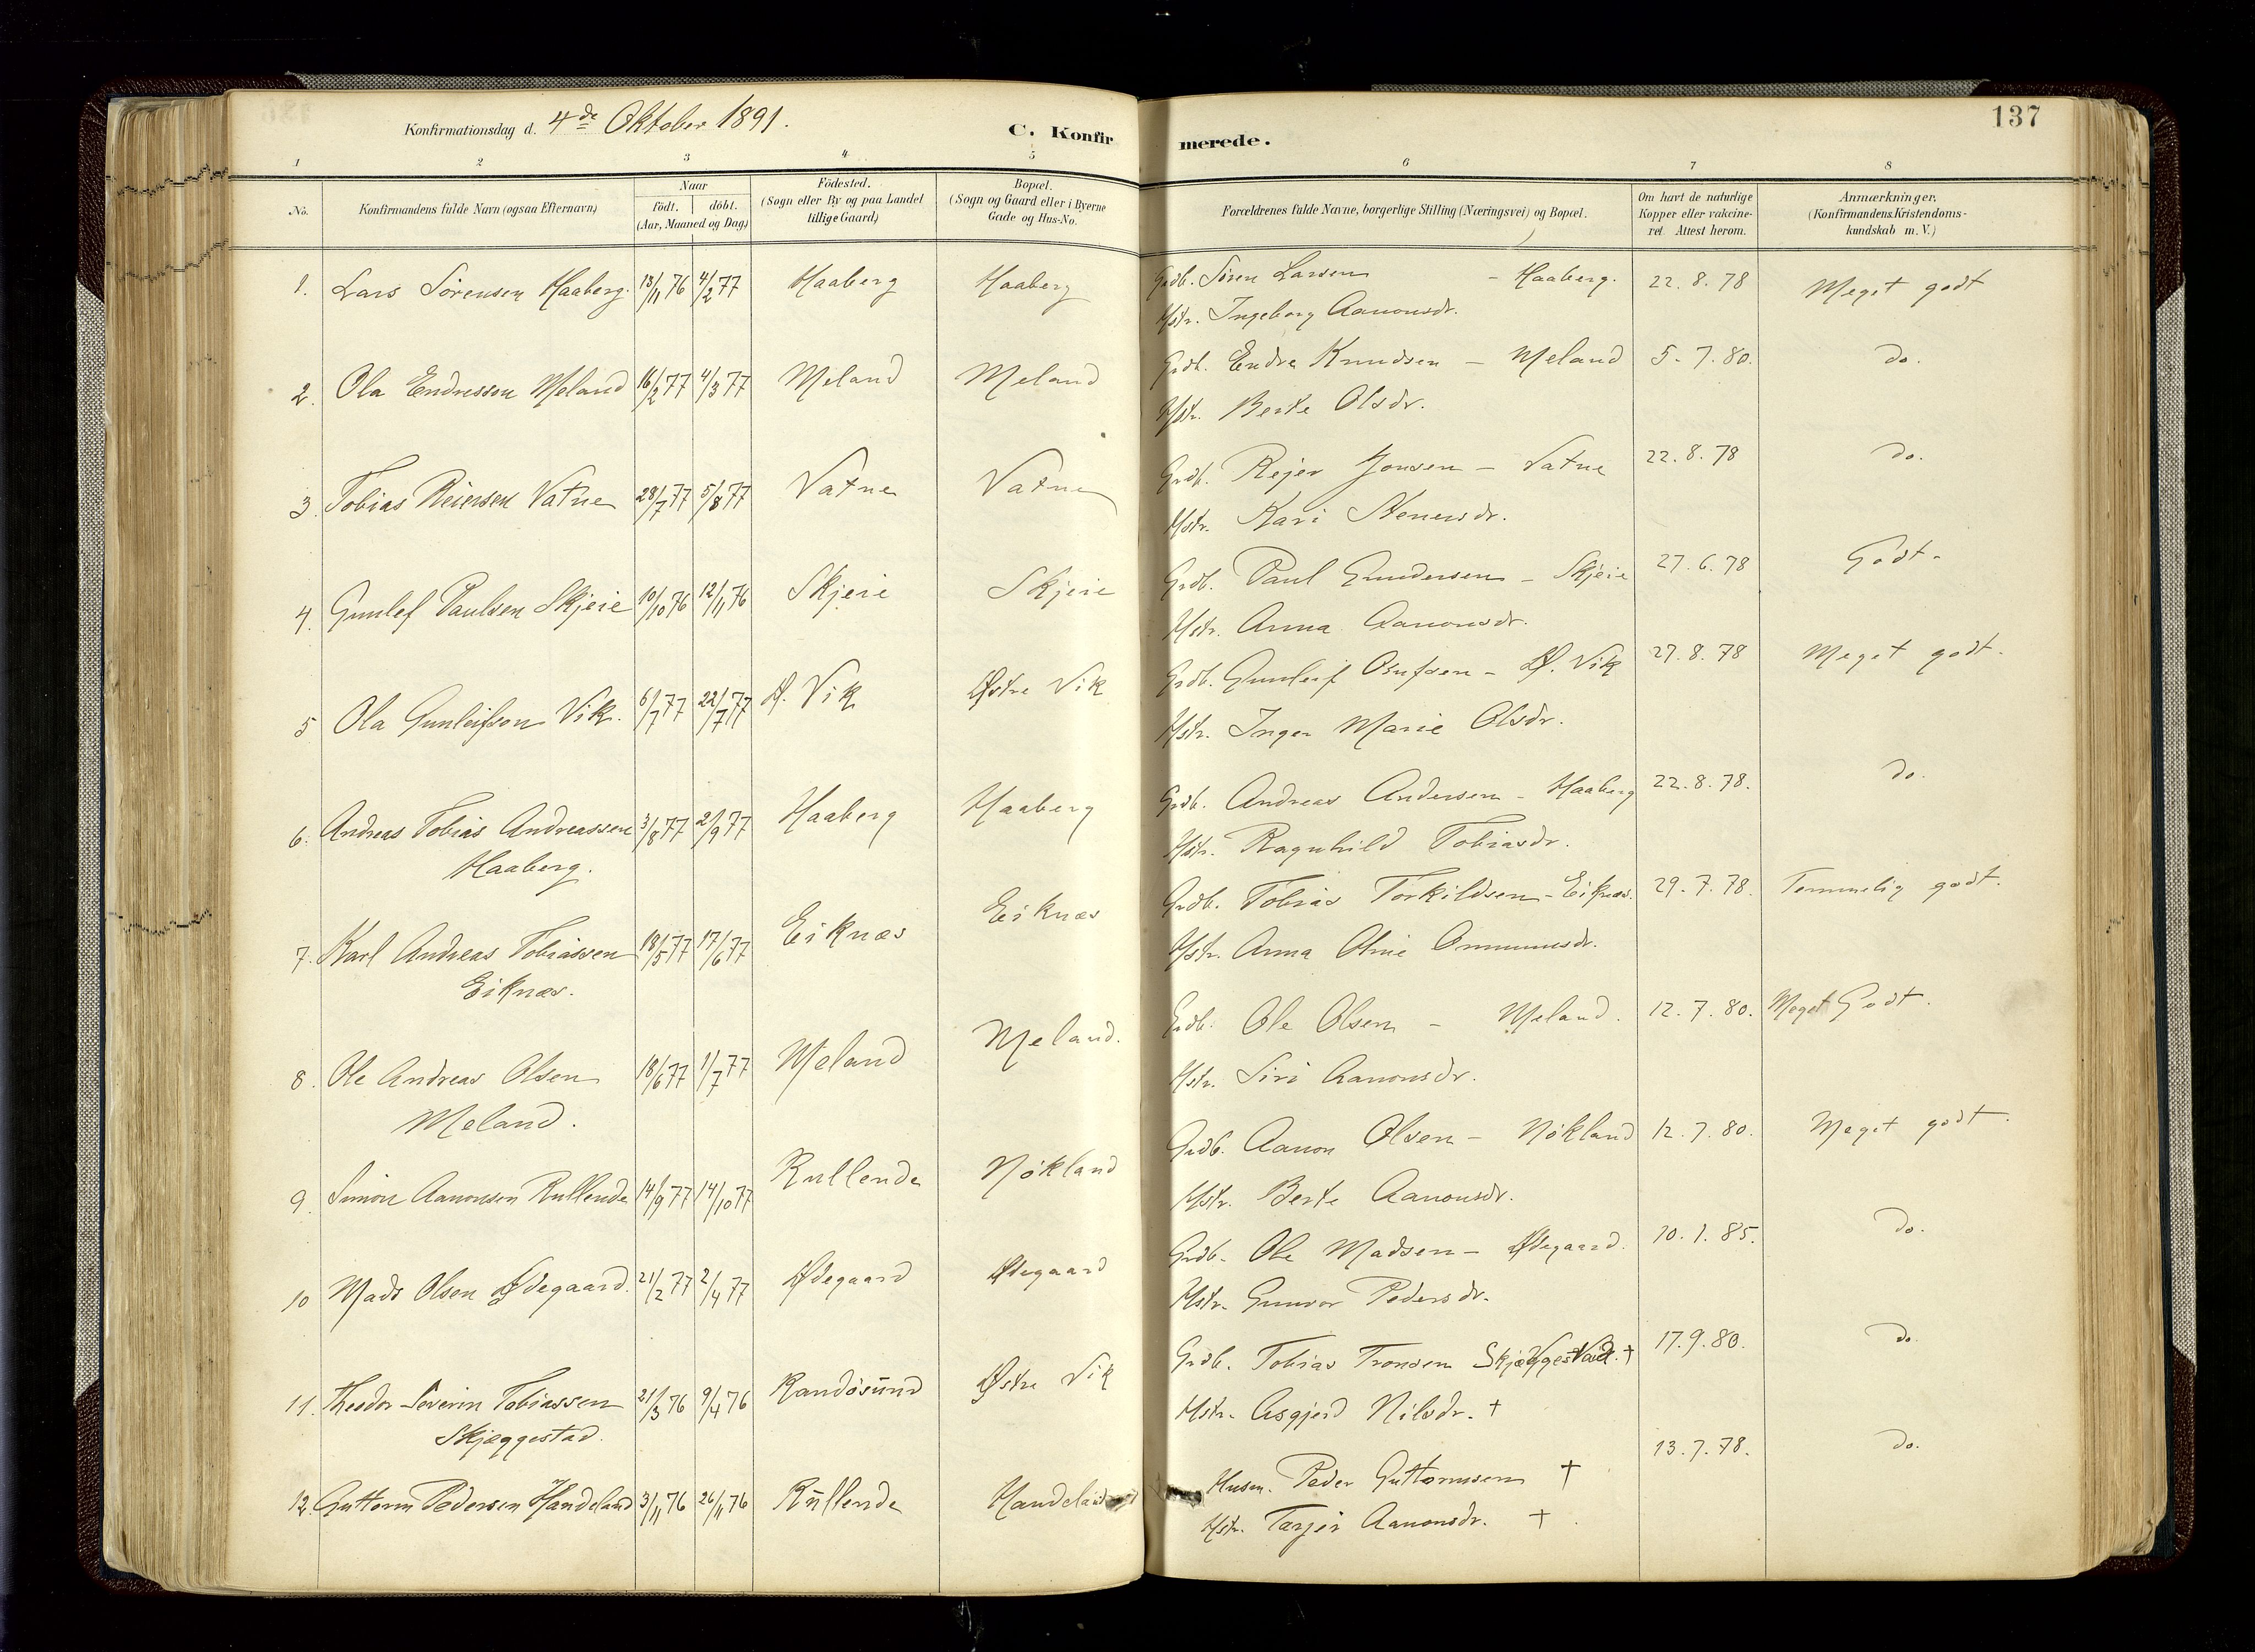 137
Konfirmationsdag d. 4de Oktober 1891.
C. Konfirmerede.
1 2 3 4 5 6 7 8
No.
Konfirmandens fulde Navn (ogsaa Efternavn)
Naar
födt. döbt.
(Aar, Maaned og Dag)
Födested.
(Sogn eller By og paa Landet
tillige Gaard)
Bopæl.
(Sogn og Gaard eller i Byerne
Gade og Hus-No.
Forældrenes fulde Navne, borgerlige Stilling (Næringsvei) og Bopæl.
Om havt de naturlige
Kopper eller vakcine-
ret. Attest herom.
Anmærkninger.
(Konfirmandens Kristendoms-
kundskab m. V.)
1. Lars Sørensen Haaberg. 13/11 76 4/2 77 Haaberg Haaberg Grdb. Søren Larsen - Haaberg. 22. 8. 78 Meget godt
Hstr. Ingeborg Aanonsdr.
2. Ola Endresson Meland 16/2 77 4/3 77 Meland Meland Grdb. Endre Knudsen - Meland 5. 7. 80. do.
Hstr. Berte Olsdr.
3. Tobias Reiersen Vatne 28/7 77 5/8 77 Vatne Vatne Grdb. Rejer Jonsen - Vatne 22. 8. 78 do.
Hstr. Kari Stenersdr.
4. Gunlef Paulsen Skjeie 10/10 76 12/11 76 Skjeie Skjeie Grdb. Paul Gundersen - Skjeie 27. 6. 78 Godt.
Hstr. Anna Aanonsdr.
5 Ola Gunleifson Vik. 6/7 77 22/7 77 Ø. Vik Østre Vik Grdb. Gunleif Osufsen - Ø. Vik 27. 8. 78 Meget godt.
Hstr. Inger Marie Olsdr.
6. Andreas Tobias Andreassen 3/8 77 2/9 77 Haaberg Haaberg Grdb. Andreas Andersen - Haaberg 22. 8. 78. do.
Haaberg. Hstr. Ragnhild Tobiasdr.
7. Karl Andreas Tobiassen 18/5 77 17/6 77 Eiknæs Eiknæs Grdb. Tobias Torkildsen - Eiknæs. 29. 7. 78. Temmelig godt.
Eiknæs. Hstr. Anna Oline Ommunsdr.
8. Ole Andreas Olsen 18/6 77 1/7 77 Meland Meland. Grdb. Ole Olsen - Meland. 12. 7. 80. Meget Godt.
Meland. Hstr. Siri Aanonsdr.
9. Simon Aanonsen Rullende 14/9 77 14/10 77 Rullende Nökland Grdb. Aanon Olsen - Nökland 12. 7. 80. Meget godt.
Hstr. Berte Aanonsdr.
10 Mads Olsen Ødegaard. 21/2 77 2/4 77 Ødegaard Ødegaard Grdb. Ole Madsen - Ødegaard. 10. 1. 85. do.
Hstr. Gunvor Pedersdr.
11. Theodor Severin Tobiassen 21/3 76 9/4 76 Randösund Østre Vik Grdb. Tobias Tronsen Skjæggestad. † 17. 9. 80. do.
Skjæggestad. Hstr. Asgjerd Nilsdr. †
12. Guttorm Pedersen Handeland 3/11 76 26/11 76 Rullende Handeland Husm. Peder Guttormsen † 13. 7. 78. do.
Hstr. Tarjer Aanonsdr. †